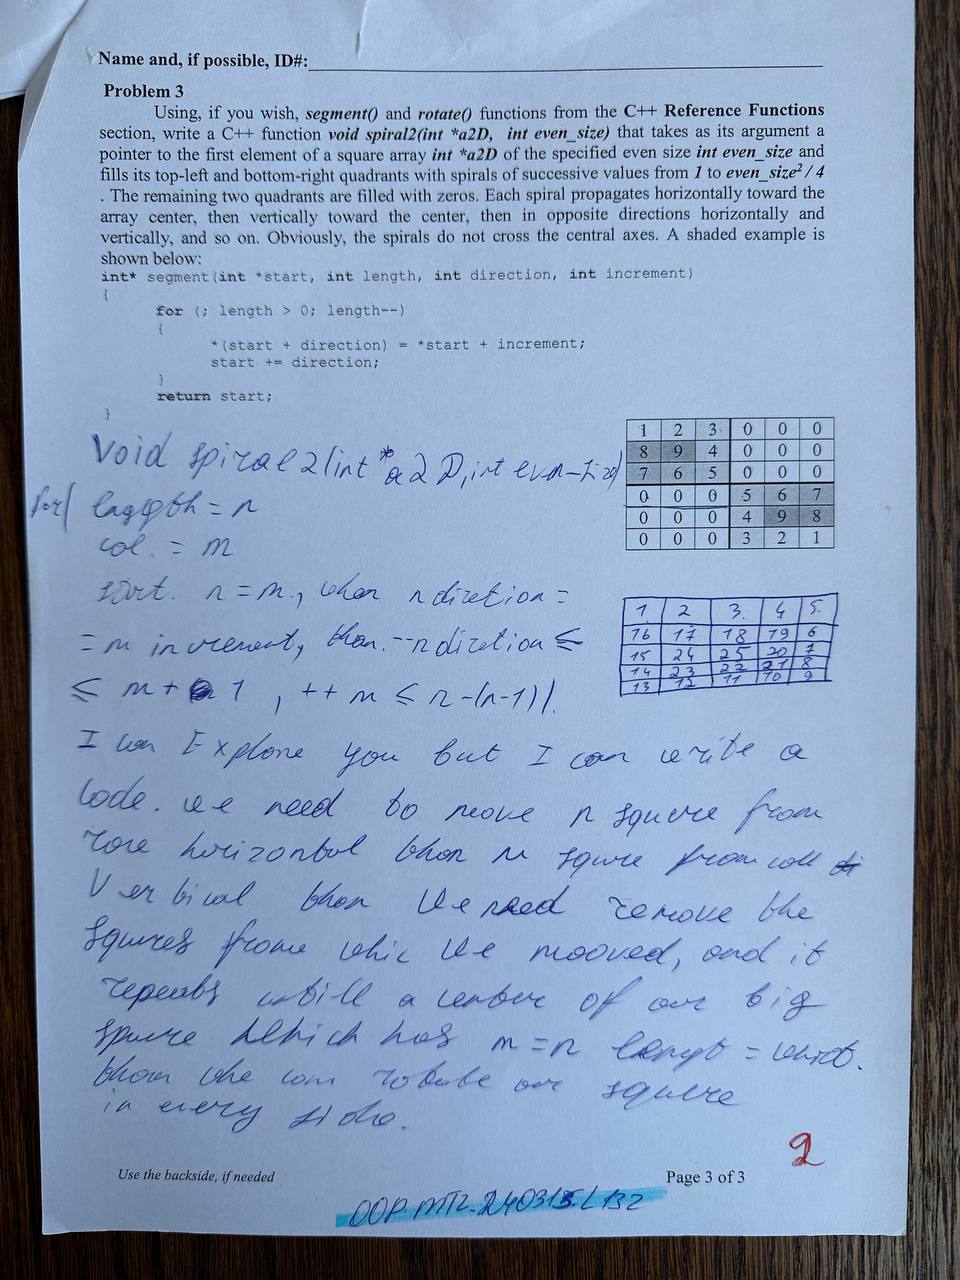 Name and, if possible, ID#:
Problem 3
Using, if you wish, segment() and rotate() functions from the C++ Reference Functions
section, write a C++ function void spiral2(int *a2D, int even_size) that takes as its argument a
pointer to the first element of a square array int *a2D of the specified even size int even_size and
fills its top-left and bottom-right quadrants with spirals of successive values from 1 to even_size² / 4
. The remaining two quadrants are filled with zeros. Each spiral propagates horizontally toward the
array center, then vertically toward the center, then in opposite directions horizontally and
vertically, and so on. Obviously, the spirals do not cross the central axes. A shaded example is
shown below:
int* segment(int *start, int length, int direction, int increment)
{
for (; length > 0; length--)
{
*(start + direction) = *start + increment;
start += direction;
}
return start;
}
1 2 3 0 0 0
8 9 4 0 0 0
7 6 5 0 0 0
0 0 0 5 6 7
0 0 0 4 9 8
0 0 0 3 2 1
Void spiral2(int *a2D, int even-size)
for( = n
col. = m
start. n = m, when n diretion =
= m increment, than. --n diretion ≤
≤ m + 1, ++m ≤ n-(n-1)).
1 2 3. 4 5.
16 17 18 19 6
15 24 25 20 7
14 23 22 21 8
13 12 11 10 9
I can Explone you but I can write a
code. we need to move n squere from
rore horizontal than m squre from coll
Vertical than We need remove the
squres frome whic We mooved, and it
repeats untill a center of our big
squre Which has m = n lengt =
than we can rotate our squere
in every side.
2
Use the backside, if needed
Page 3 of 3
OOP.MT2.240315.L132